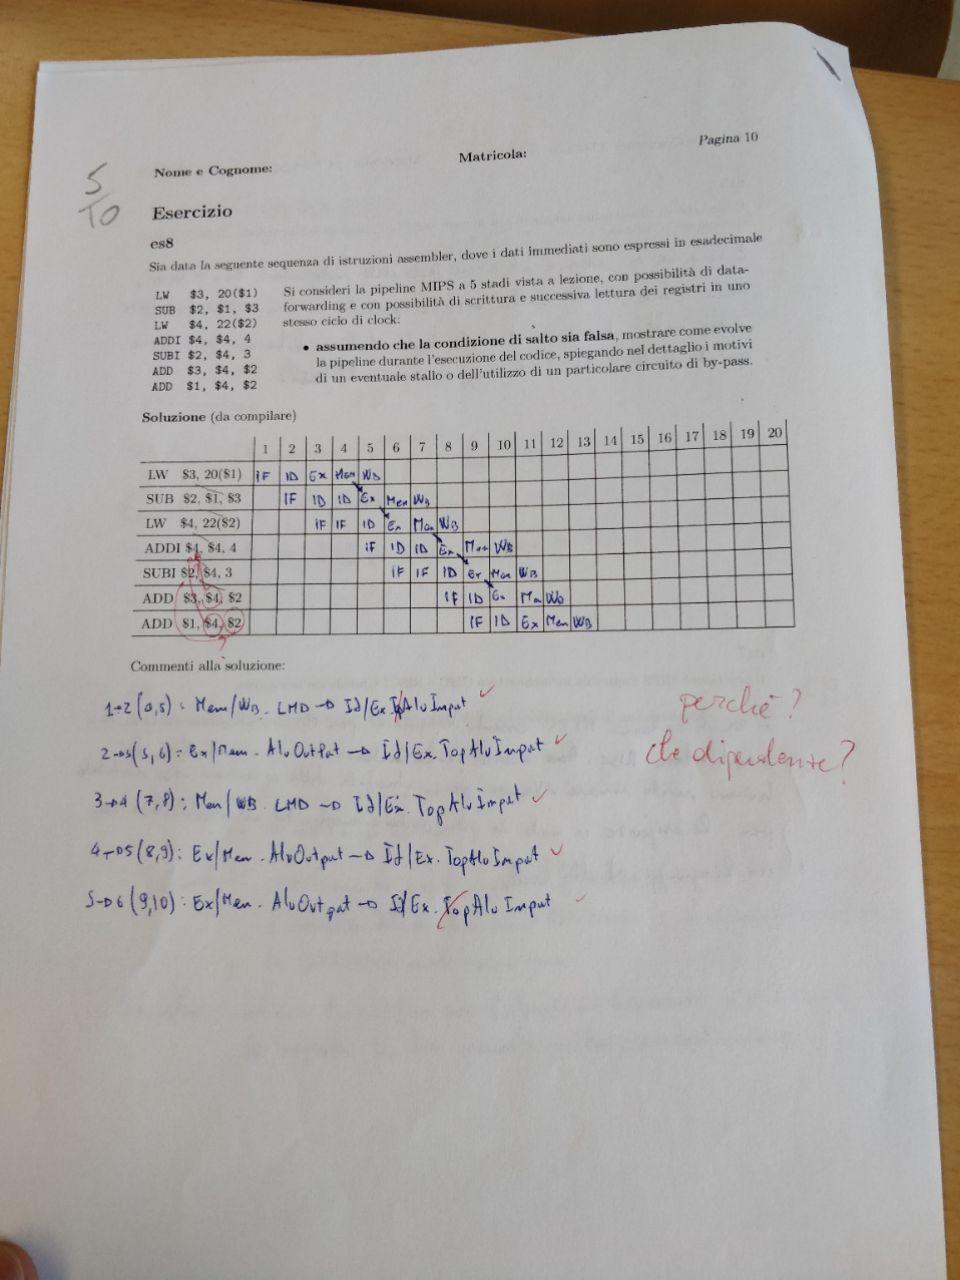 Pagina 10
Nome e Cognome: Matricola:
5
10
Esercizio
es8
Sia data la seguente sequenza di istruzioni assembler, dove i dati immediati sono espressi in esadecimale
LW $3, 20($1)
SUB $2, $1, $3
LW $4, 22($2)
ADDI $4, $4, 4
SUBI $2, $4, 3
ADD $3, $4, $2
ADD $1, $4, $2
Si consideri la pipeline MIPS a 5 stadi vista a lezione, con possibilità di data-
forwarding e con possibilità di scrittura e successiva lettura dei registri in uno
stesso ciclo di clock:
• assumendo che la condizione di salto sia falsa, mostrare come evolve
la pipeline durante l'esecuzione del codice, spiegando nel dettaglio i motivi
di un eventuale stallo o dell'utilizzo di un particolare circuito di by-pass.
Soluzione (da compilare)
1 2 3 4 5 6 7 8 9 10 11 12 13 14 15 16 17 18 19 20
LW $3, 20($1) IF ID Ex Mem WB
SUB $2, $1, $3 IF ID ID Ex Mem WB
LW $4, 22($2) IF IF ID Ex Mem WB
ADDI $4, $4, 4 IF ID ID Ex Mem WB
SUBI $2, $4, 3 IF IF ID Ex Mem WB
ADD $3, $4, $2 IF ID Ex Mem WB
ADD $1, $4, $2 IF ID Ex Mem WB
Commenti alla soluzione:
1→2 : Mem/WB. LMD → Id/Ex. AluInput
(5,6): Ex/Mem. AluOutput → Id/Ex. TopAluInput
3→4 (7,8): Mem/WB. LMD → Id/Ex. TopAluInput
4→5 (8,9): Ex/Mem. AluOutput → Id/Ex. TopAluInput
5→6 (9,10): Ex/Mem. AluOutput → Id/Ex. TopAluInput
perché?
che dipendenze?